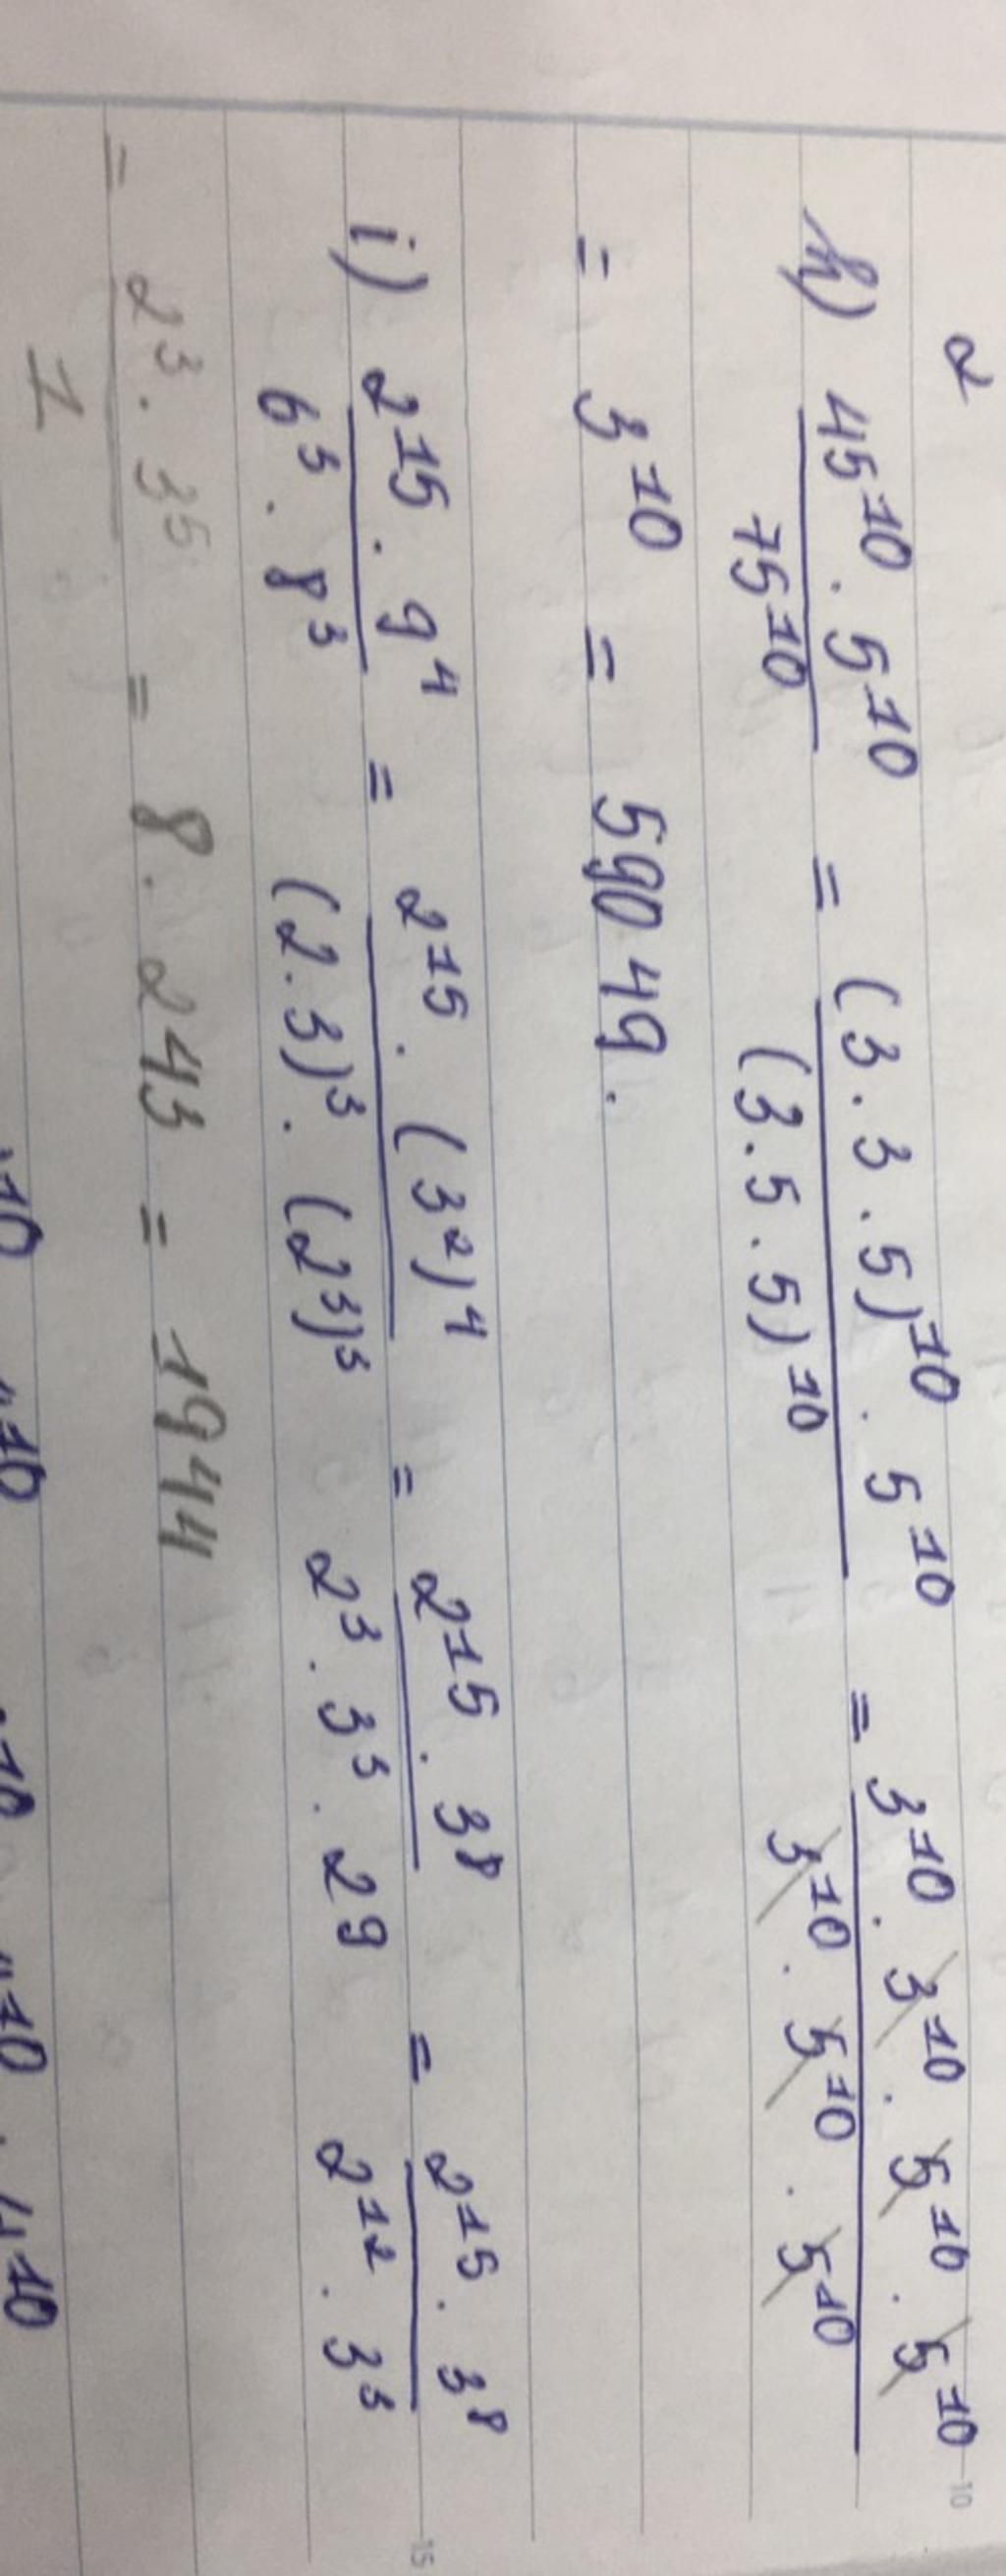 2
h) 45^10 . 5^10 / 75^10 = (3 . 3 . 5)^10 . 5^10 / (3 . 5 . 5)^10 = 3^10 . 3^10 . 5^10 . 5^10 / 3^10 . 5^10 . 5^10
= 3^10 = 590 49 .
i) 2^15 . 9^4 / 6^3 . 8^3 = 2^15 . (3^2)^4 / (2 . 3)^3 . (2^3)^3 = 2^15 . 3^8 / 2^3 . 3^3 . 29 = 2^15 . 3^8 / 2^12 . 3^3
= 2^3 . 3^5 / 1 = 8 . 243 = 1944
10
15